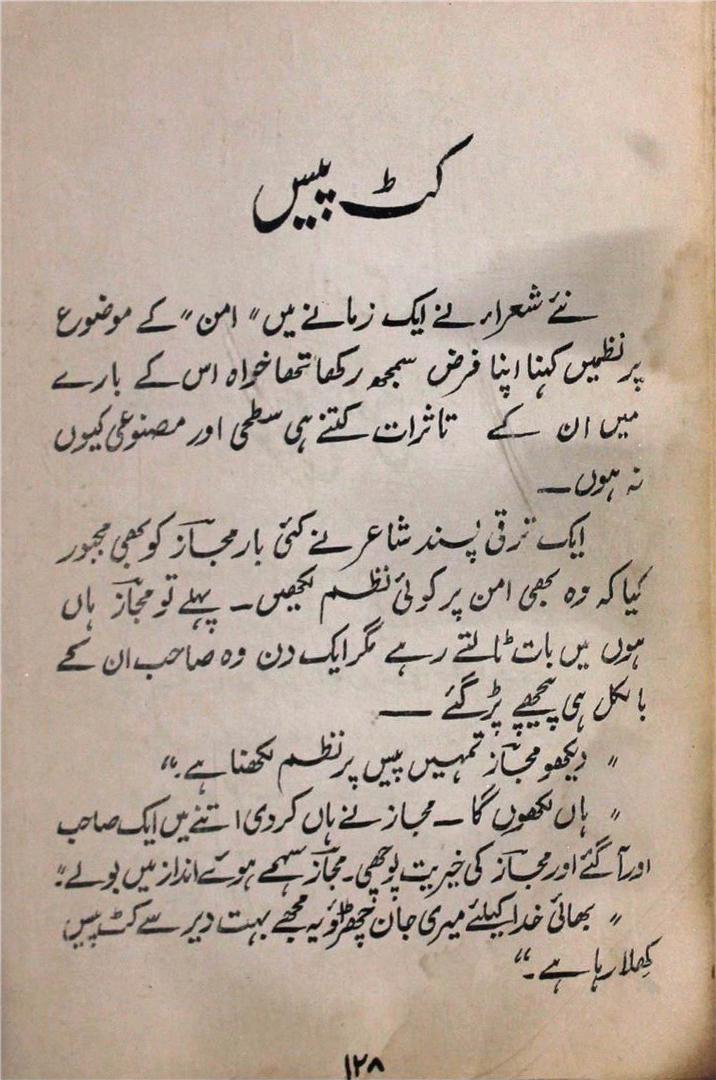 کٹ پیس
نئے شعراء نے ایک زمانے میں "امن" کے موضوع
پر نظمیں کہنا اپنا فرض سمجھ رکھا تھا خواہ اس کے بارے
میں ان کے تاثرات کتنے ہی سطحی اور مصنوعی کیوں
نہ ہوں۔
ایک ترقی پسند شاعر نے کئی بار مجازؔ کو بھی مجبور
کیا کہ وہ بھی امن پر کوئی نظم لکھیں۔ پہلے تو مجازؔ ہاں
ہوں میں بات ٹالتے رہے مگر ایک دن وہ صاحب ان کے
بالکل ہی پیچھے پڑ گئے ——
"دیکھو مجازؔ تمہیں پیس پر نظم لکھنا ہے۔"
"ہاں لکھوں گا۔ مجاز نے ہاں کر دی اتنے میں ایک صاحب
اور آ گئے اور مجازؔ کی خیریت پوچھی۔ مجازؔ سہمے ہوئے انداز میں بولے:"
"بھائی خدا کیلئے میری جان چھڑاؤ یہ مجھے بہت دیر سے کٹ پیس
کھلا رہا ہے۔"
۱۲۸